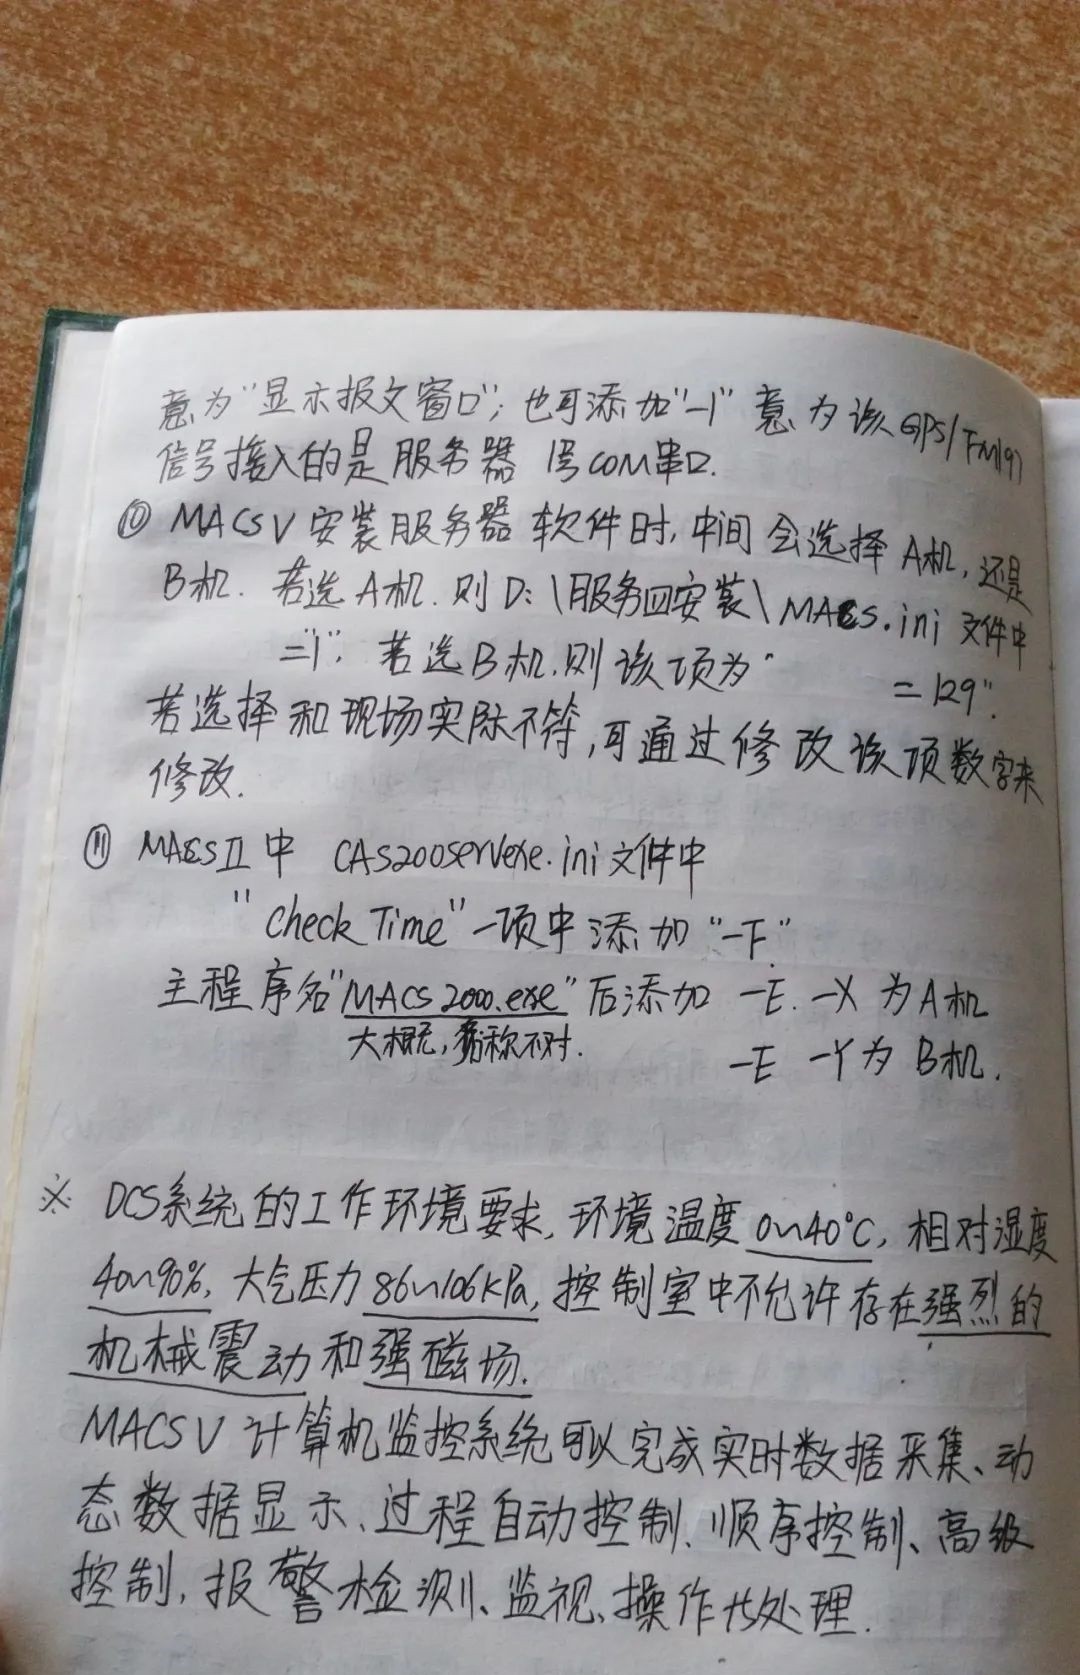 意为"显示报文窗口"; 也可添加"-1" 意为该GPS/FM197
信号接入的是服务器 1号COM串口.
⑩ MACSV安装服务器软件时, 中间会选择A机, 还是
B机. 若选A机. 则D:\服务 安装\MACS.ini 文件中
="1". 若选B机. 则该项为" =129".
若选择和现场实际不符, 可通过修改该项数字来
修改.
⑪ MACSⅡ中 CAS200servexe.ini文件中
"Check Time"一项中添加"-F"
主程序名"MACS2000.exe"后添加 -E. -X 为A机
大概, 名称不对. -E -Y为B机.
※ DCS系统的工作环境要求, 环境温度0~40℃, 相对湿度
40~90%, 大气压力86~106kPa, 控制室中不允许存在强烈的
机械震动和强磁场.
MACSV 计算机监控系统可以完成实时数据采集、动
态数据显示、过程自动控制、顺序控制、高级
控制, 报警检测、监视、操作 处理.